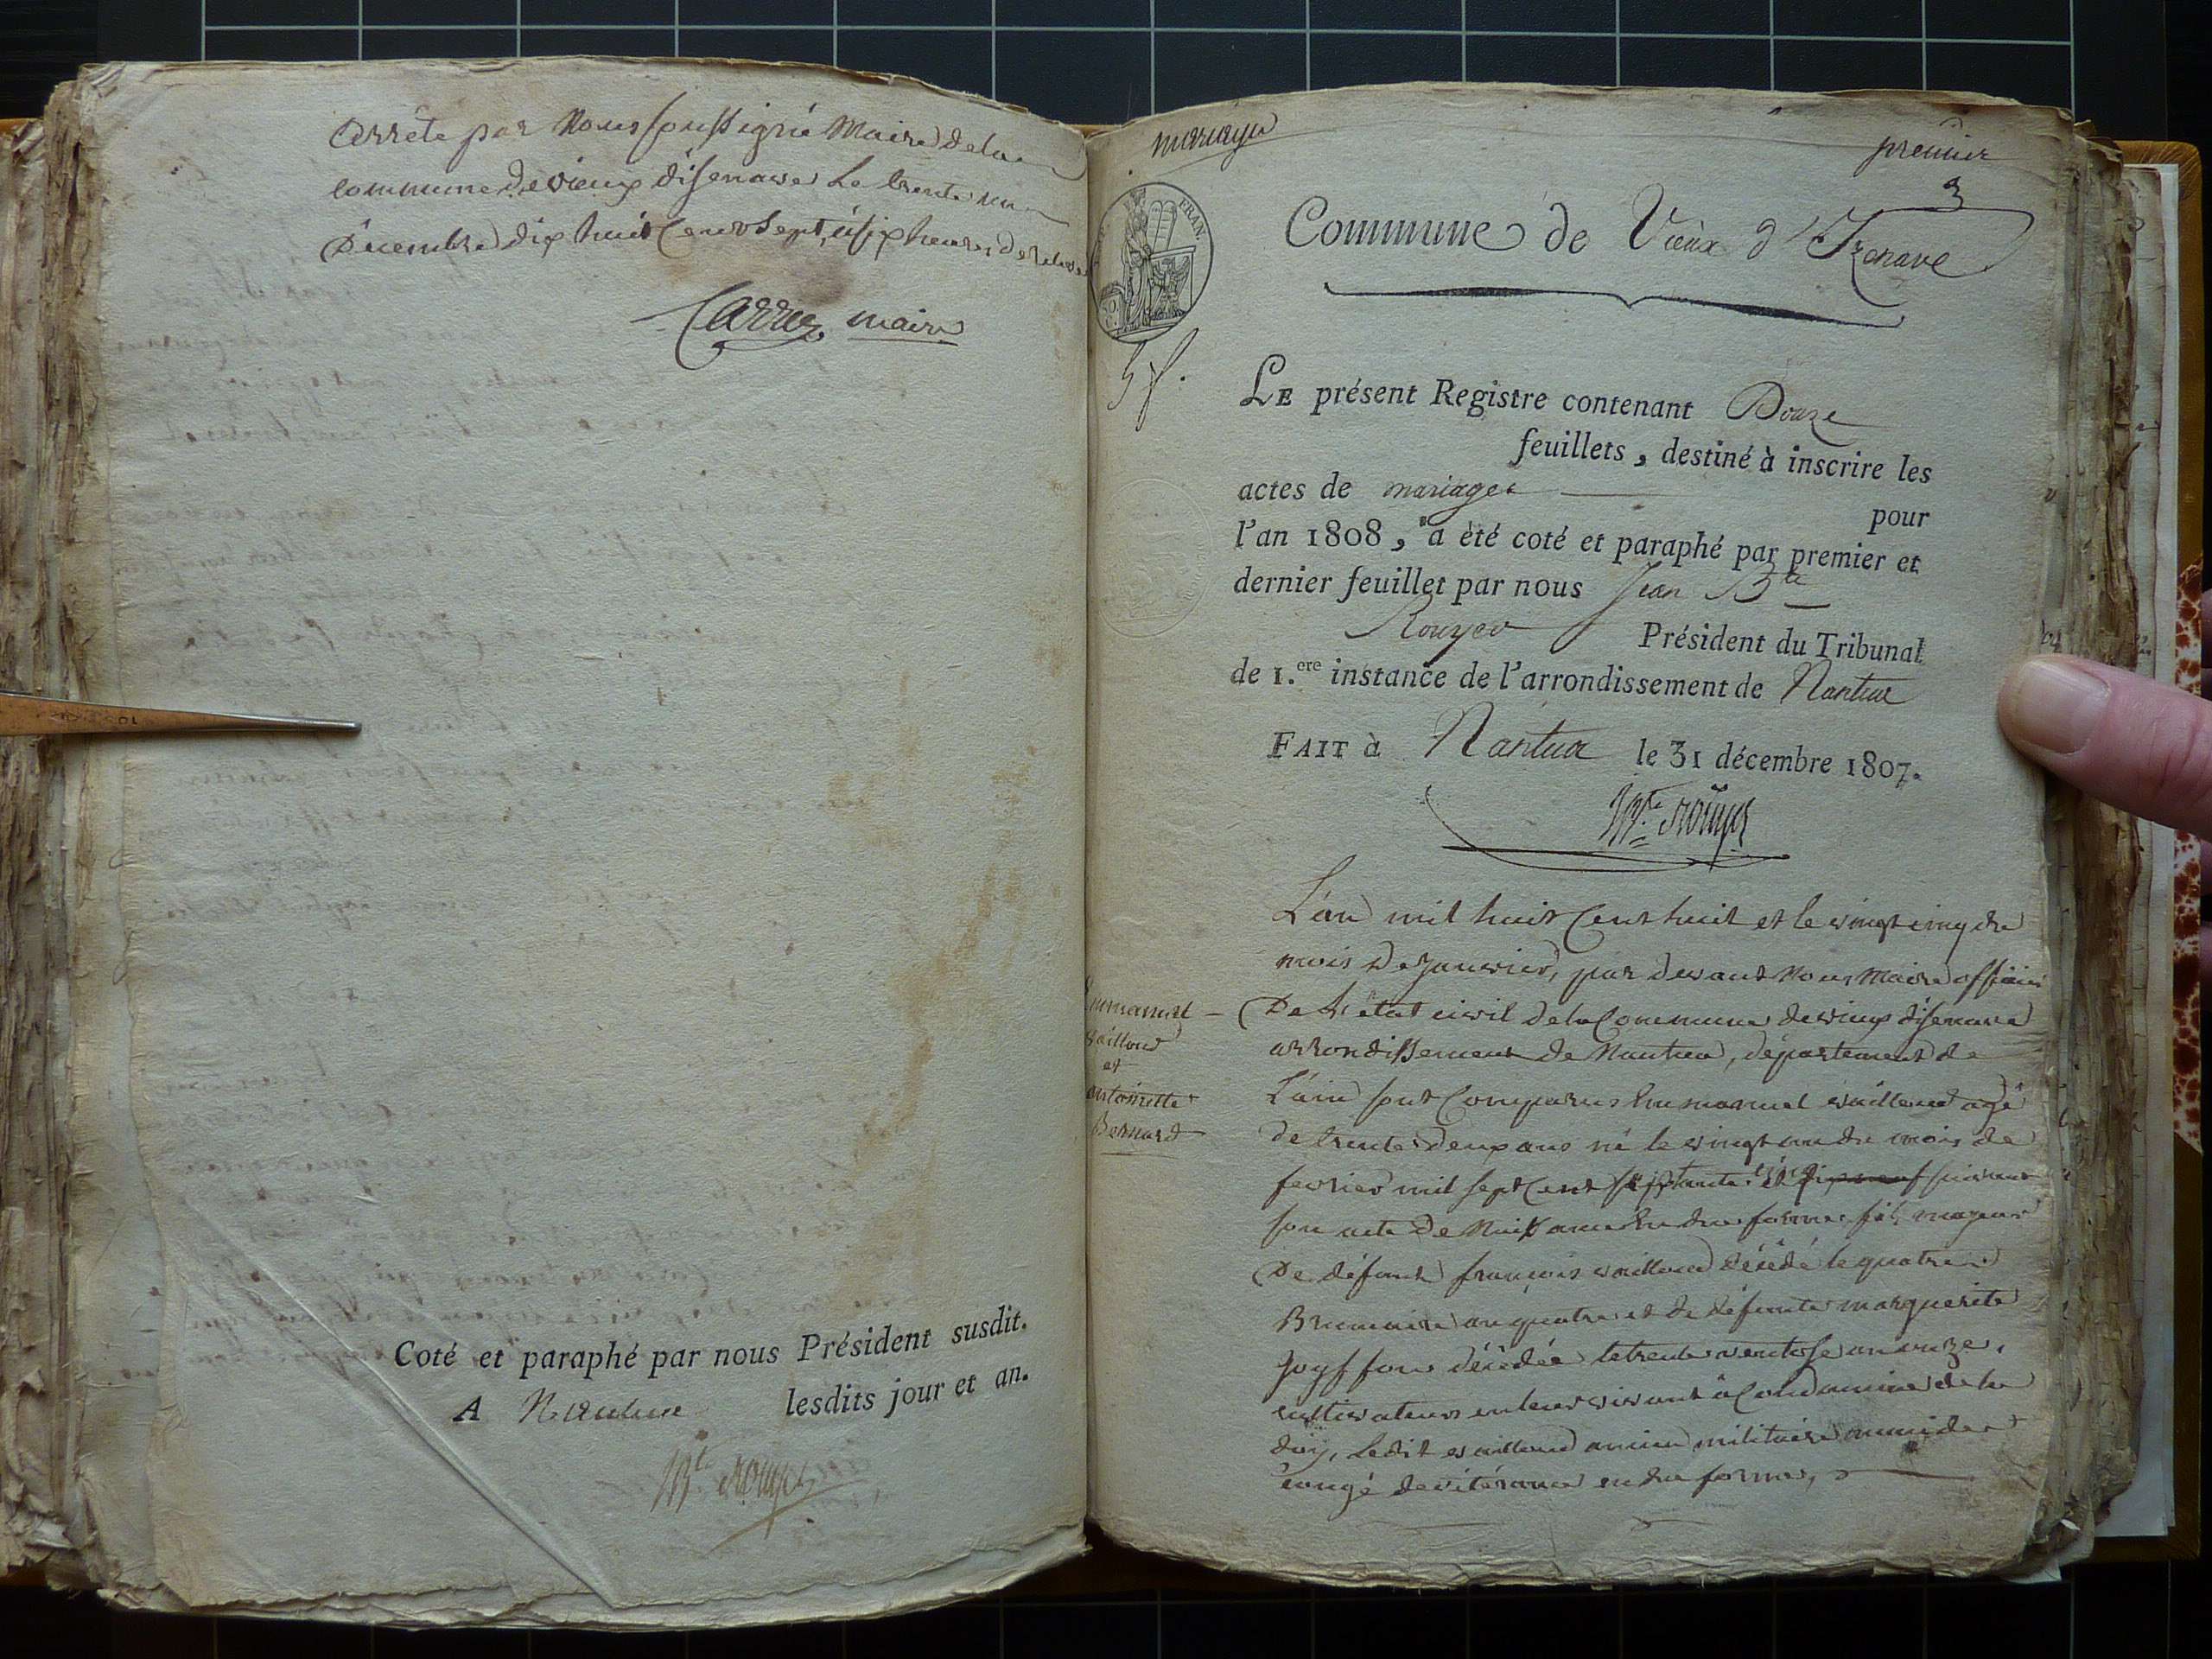 Arrêté par Nous soussigné Maire de la
commune de vieux disenave Le trente un
Décembre dix huit Cent Sept, à six heures de relevée
Carrez maire
Coté et paraphé par nous Président susdit.
A Nantua lesdits jour et an.
JBte Rouyer
mariage
premier
3
FRAN.
Commune de Vieux d'Izenave
LE présent Registre contenant Douze
feuillets, destiné à inscrire les
actes de mariages
pour
l'an 1808, a été coté et paraphé par premier et
dernier feuillet par nous Jean Bte
Rouyer Président du Tribunal
de 1.ere instance de l'arrondissement de Nantua
FAIT à Nantua le 31 décembre 1807.
JBte Rouyer
L'an mil huit Cent huit et le vingt cinq du
mois de Janvier, par devant Nous Maire officier
De L'état civil de la Commune de vieux disenave
arrondissement de Nantua, département de
L'ain sont Comparus Emmanuel vailloud agé
de trente deux ans né le vingt un du mois de
fevrier mil sept Cent septante suivant
son acte de Naissance En due forme, fils majeur
De défunt françois vailloud décédé le quatre
Brumaire an quatre et de défunte marguerite
Joyffon décédée le trente ventose an onze,
cultivateurs en leur vivant à Condamine de la
doÿ, Ledit vailloud ancien militaire muni de
congé de vétérance en due forme,
Emmanuel
vailloud
et
antoinette
Bernard